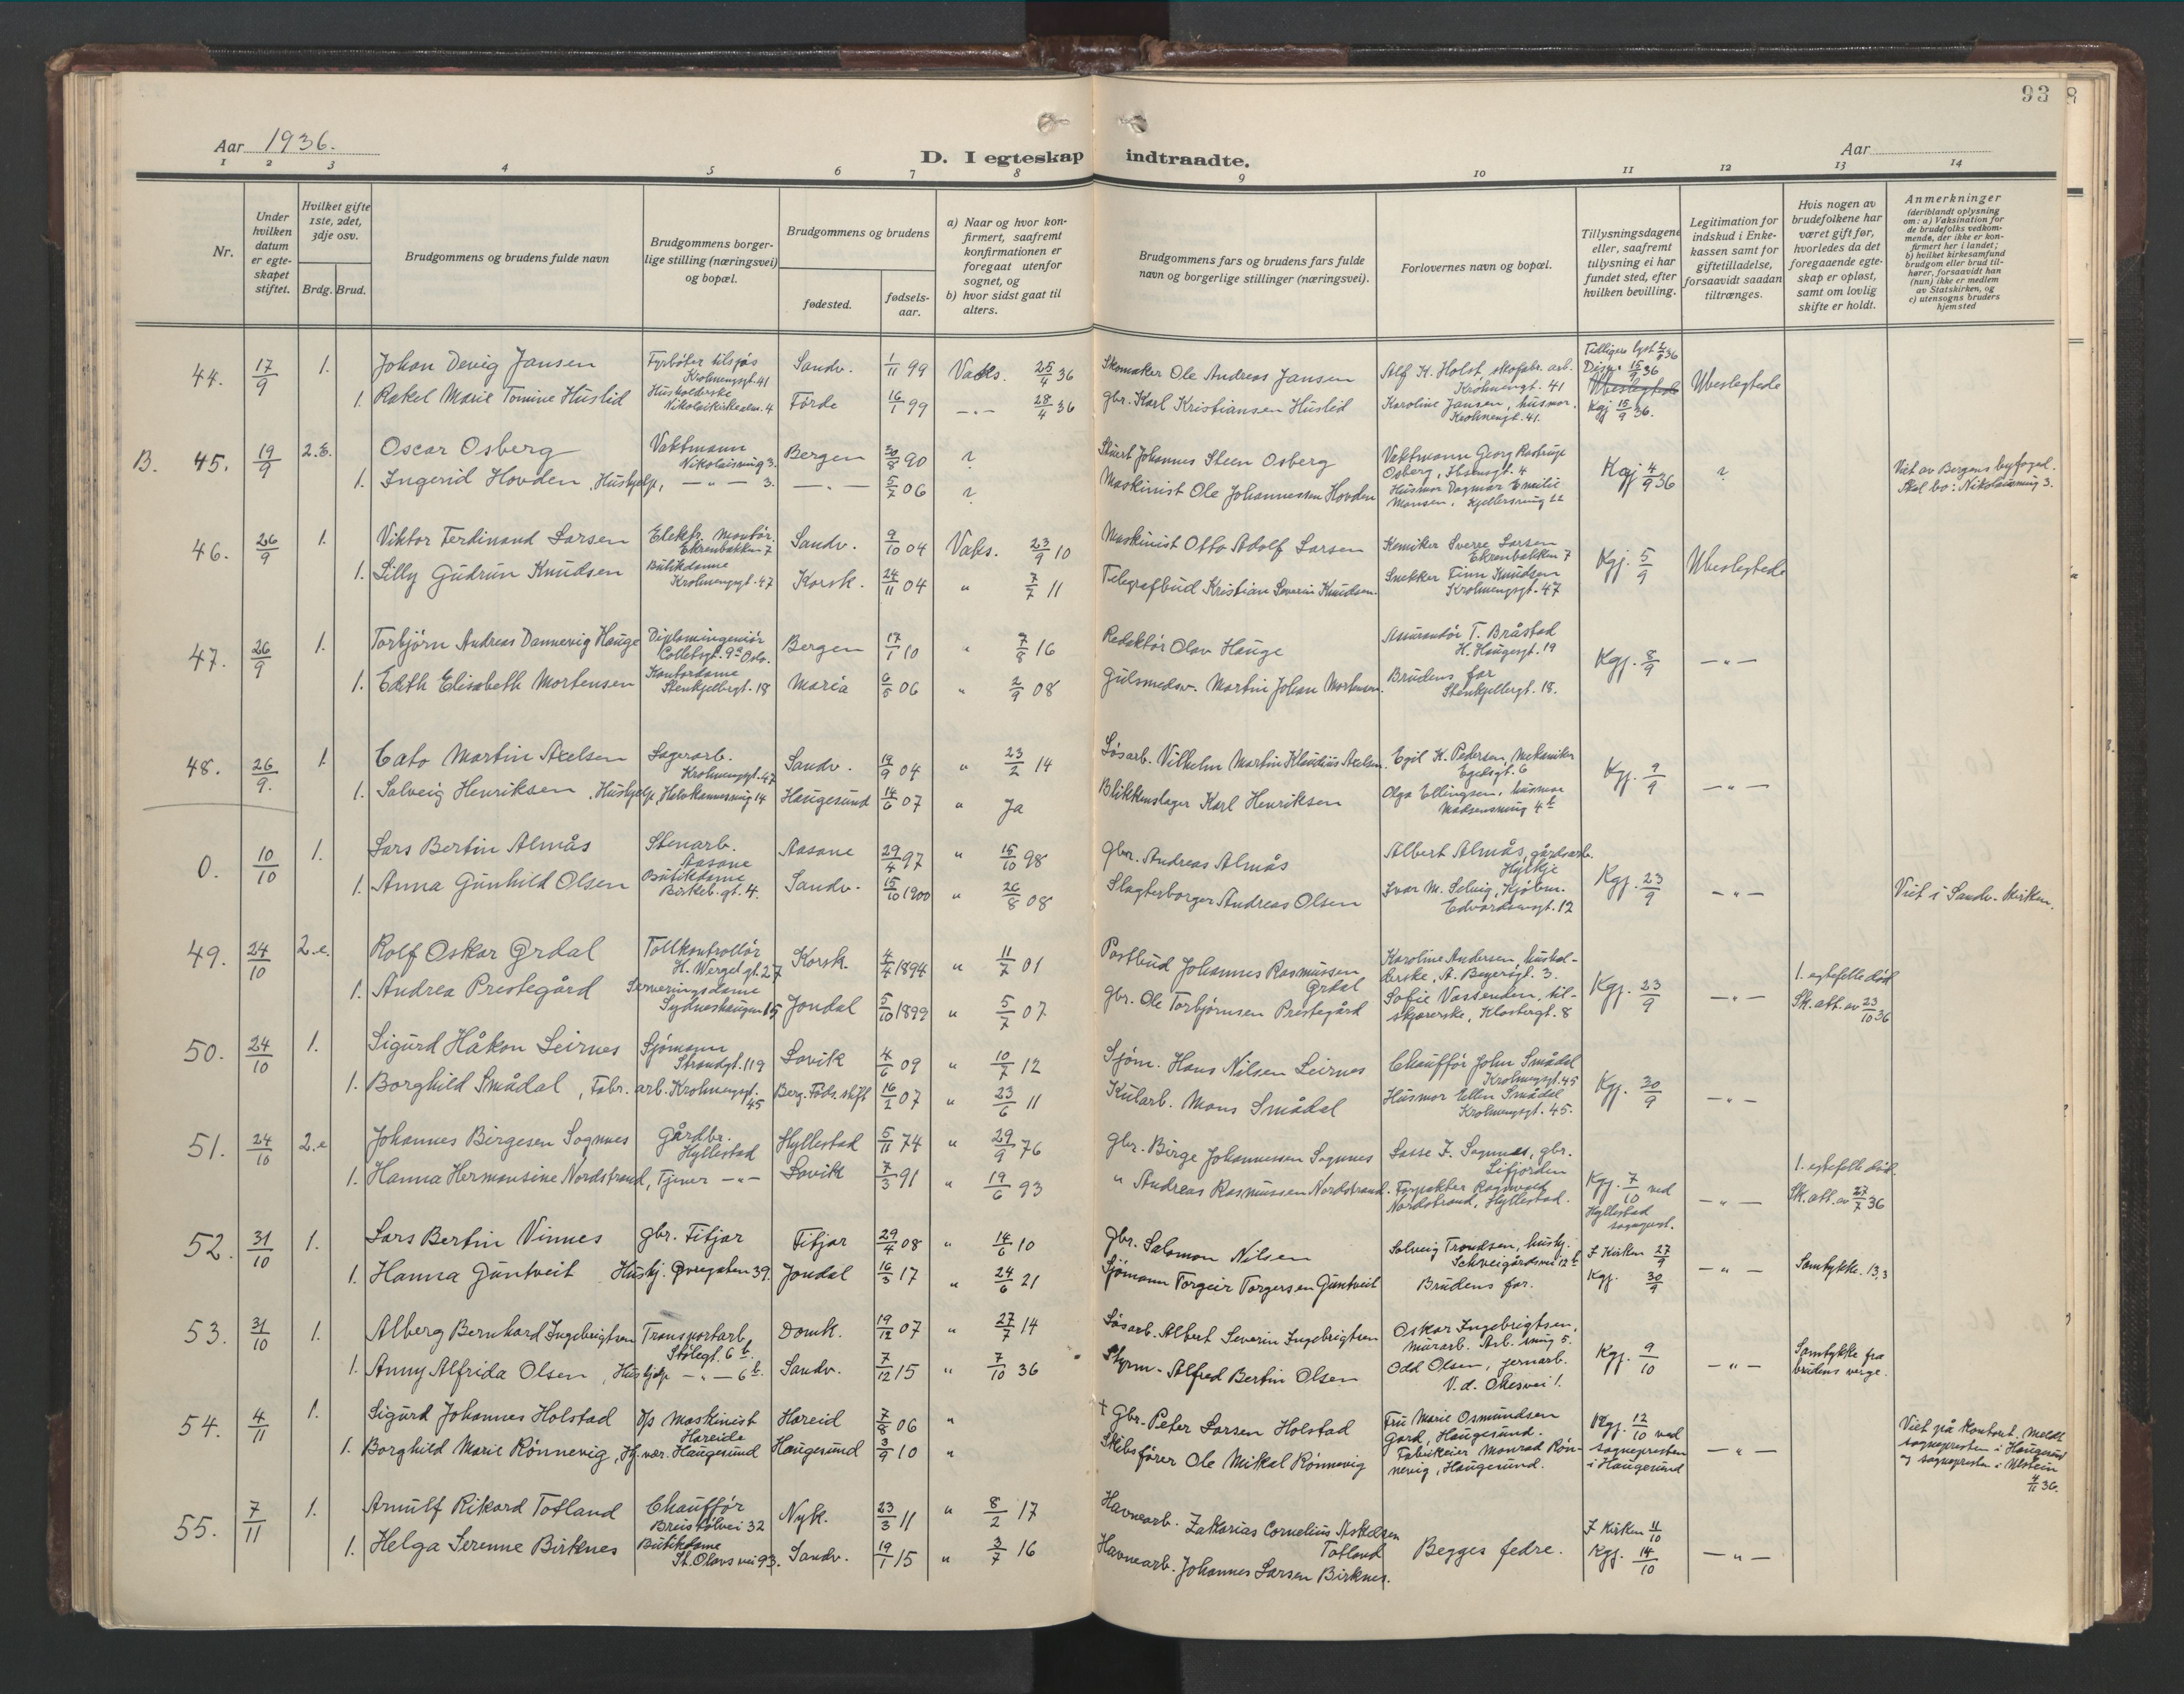 93
Aar 1936.
D. I egteskap indtraadte.
Aar
1 2 3 4 5 6 7 8 9 10 11 12 13 14
Nr.
Under hvilken datum er egteskapet stiftet.
Hvilket gifte 1ste, 2det, 3dje osv.
Brdg. Brud.
Brudgommens og brudens fulde navn
Brudgommens borgerlige stilling (næringsvei) og bopæl.
Brudgommens og brudens
fødested.
fødselsaar.
a) Naar og hvor konfirmert, saafremt konfirmationen er foregaat utenfor sognet, og
b) hvor sidst gaat til alters.
Brudgommens fars og brudens fars fulde navn og borgerlige stillinger (næringsvei).
Forlovernes navn og bopæl.
Tillysningsdagene eller, saafremt tillysning ei har fundet sted, efter hvilken bevilling.
Legitimation for indskud i Enkekassen samt for giftetilladelse, forsaavidt saadan tiltrænges.
Hvis nogen av brudefolkene har været gift før, hvorledes da det foregaaende egteskap er opløst, samt om lovlig skifte er holdt.
Anmerkninger (deriblandt oplysning om: a) Vaksination for de brudefolks vedkommende, der ikke er konfirmert her i landet; b) hvilket kirkesamfund brudgom eller brud tilhører, forsaavidt han (hun) ikke er medlem av Statskirken, og c) utensogns bruders hjemsted
44. 17/9 1. Johan Devig Jansen Fyrbøter tilsjøs Krohnengsgt. 41 Sandv. 1/11 99 Vaks. 25/4 36 Skomaker Ole Andreas Jansen Alf K. Holst, skofabr. arb. Krohnengt. 41 Tidligere lyst 2/8 36 Disp. 15/9 36 Ubeslegtede
1. Rakel Marie Tomine Huslid Husholderske Nikolaikirkealm. 4 Førde 16/1 99 —"— 28/4 36 gbr. Karl Kristiansen Huslid Karoline Jansen, husmor. Krohnengt. 41. Kgj 15/9 36.
B. 45. 19/9 2.e. Oscar Osberg Vaktmann Nikolaismug 3. Bergen 30/8 90 ? Stuert Johannes Steen Osberg Vaktmann Georg Rostrup Osberg, Ibsensgt. 4 Kgj 4/9 36 ? Viet av Bergens byfoged. Skal bo: Nikolaismug 3.
1. Ingerid Hovden, Hushjelp, —"— 3. —"— 5/7 06 ? Maskinist Ole Johannessen Hovden Husmor Dagmar Emilie Monsen, Kjellersmug 22
46. 26/9 1. Viktor Ferdinand Larsen Elektr. montør. Ekrenbakken 7 Sandv. 9/10 04 Vaks. 23/9 10 Maskinist Otto Adolf Larsen Kemiker Sverre Larsen Ekrenbakken 7 Kgj. 5/9 Ubeslegtede
1. Lilly Gudrun Knudsen Butikdame Krohnengsgt. 47 Korsk. 24/11 04 " 7/7 11 Telegrafbud Kristian Severin Knudsen. Snekker Finn Knudsen Krohnengsgt. 47
47. 26/9 1. Torbjørn Andreas Dannevig Hauge Diplomingeniør Colletsgt. 9a Oslo. Bergen 17/1 10 " 7/8 16 Redaktør Olav Hauge Assurandør T. Bråstad H. Haugesgt. 19 Kgj. 8/9 —"—
1. Edith Elisabeth Mortensen Kontordame Stenkjellergt. 18 Maria 6/5 06 " 2/9 08 Gulsmedsv. Martin Johan Mortensen. Brudens far Stenkjellergt. 18.
48. 26/9. 1. Cato Martin Axelsen Lagerarb. Krohnengsgt. 47 Sandv. 19/9 04 " 23/2 14 Løsarb. Vilhelm Martin Klaudius Axelsen. Egil K. Pedersen, Mekaniker Egedsgt. 6 Kgj. 9/9 —"—
1. Solveig Henriksen, Hushjelp, Halvkannesmug 14 Haugesund 14/6 07 " Ja Blikkenslager Karl Henriksen Olga Ellingsen, husmor Madsensmug 4b
0. 10/10 1. Lars Bertin Almås Stenarb. Aasane Aasane 29/4 97 " 15/10 98 gbr. Andreas Almås Albert Almås, gårdsarb. Hylkje Kgj. 23/9 —"— Viet i Sandv. kirken.
1. Anna Gunhild Olsen Butikdame Birkeb. gt. 4. Sandv. 15/10 1900 " 26/8 08 Slagterborger Andreas Olsen Ivar M. Selvig, Kjøbm. Edvardsensgt. 12
49. 24/10 2.e. Rolf Oskar Grdal Tollkontrollør H. Wergel. gt. 27 Korsk. 4/4 1894 " 11/7 01 Postbud Johannes Rasmussen Grdal Karoline Andersen, husholderske, A. Beyersgt. 3. Kgj. 23/9 —"— 1. egtefelle død Sk.att. av 23/10 36
1. Andrea Prestegård Serveringsdame Sydneshaugen 15 Jondal 5/10 1899 " 5/7 07 gbr. Ole Torbjørnsen Prestegård Sofie Vassenden, tilskjærerske, Klostergt. 8
50. 24/10 1. Sigurd Håkon Leirnes Sjømann Strandgt. 119 Lavik 4/6 09 " 10/7 12 Sjøm. Hans Nilsen Leirnes Chauffør John Smådal Krohnengsgt. 45 Kgj. 30/9 —"—
1. Borghild Smådal, Fabr. arb. Krohnengsgt. 45 Berg. Føds. stift 16/2 07 " 23/6 11 Kularb. Mons Smådal Husmor Ellen Smådal Krohnengsgt. 45.
51. 24/10 2.e Johannes Birgesen Sognnes Gårdbr. Hyllestad Hyllestad 5/11 74 " 29/9 76 gbr. Birge Johannessen Sognnes Lasse I. Sognnes, gbr. Lifjorden Kgj. 7/10 ved Hyllestad sognepst. —"— 1. egtefelle død. Sk.att. av 27/7 36
1. Hanna Hermansine Nordstrand, Tjener —"— Lavik 7/3 91 " 19/6 93 " Andreas Rasmussen Nordstrand. Forpakter Ragnvald Nordstrand, Hyllestad.
52. 31/10 1. Lars Bertin Vinnes gbr. Fitjar Fitjar 29/4 08 " 14/6 10 Gbr. Salomon Nilsen Solveig Trondsen, hushj. Schweigårdsvei 12b I Kirken 27/9 Kgj. 30/9 —"— Samtykke. 13,3
1. Hanna Guntveit Hushj. Øvregaten 39. Jondal 16/3 17 " 24/6 21 Sjømann Torgeir Torgersen Guntveit Brudens far.
53. 31/10 1. Alberg Bernhard Ingebrigtsen Transportarb. Stølegt. 6b. Domk. 19/12 07 " 27/7 14 Løsarb. Albert Severin Ingebrigtsen Oskar Ingebrigtsen, murarb. Arb. smug 5. Kgj. 9/10 —"— Samtykke fra brudens verge.
1. Anny Alfrida Olsen, Hushjelp —"— 6b. Sandv. 7/12 15 " 7/10 36 Styrm. Alfred Bertin Olsen Odd Olsen, jernarb. V. d. Ohesvei 1.
54. 4/11 1. Sigurd Johannes Holstad D/s Maskinist Hareide Hareid 7/8 06 " + Gbr. Peter Larsen Holstad Fru Marie Osmundsen Gard, Haugesund. Kgj. 12/10 ved sognepresten i Haugesund —"— Viet på kontoret. Meldt sognepresten i Haugesund og sognepresten i Ulstein 4/11 36.
1. Borghild Marie Rønnevig, Hj. vær. Haugesund Haugesund 3/9 10 " Skibsfører Ole Mikkel Rønnevig Fabrikeier Monrad Rønnevig, Haugesund.
55. 7/11 1. Arnulf Rikard Totland Chauffør Breistølvei 32 Nyk. 23/3 11 " 8/2 17 Havnearb. Zakarias Cornelius Askelsen Totland Begges fedre. I Kirken 11/10 Kgj. 14/10 —"—
1. Helga Serenne Birknes Butikdame St. Olavs vei 93. Sandv. 19/1 15 " 3/7 16 Havnearb. Johannes Larsen Birknes.